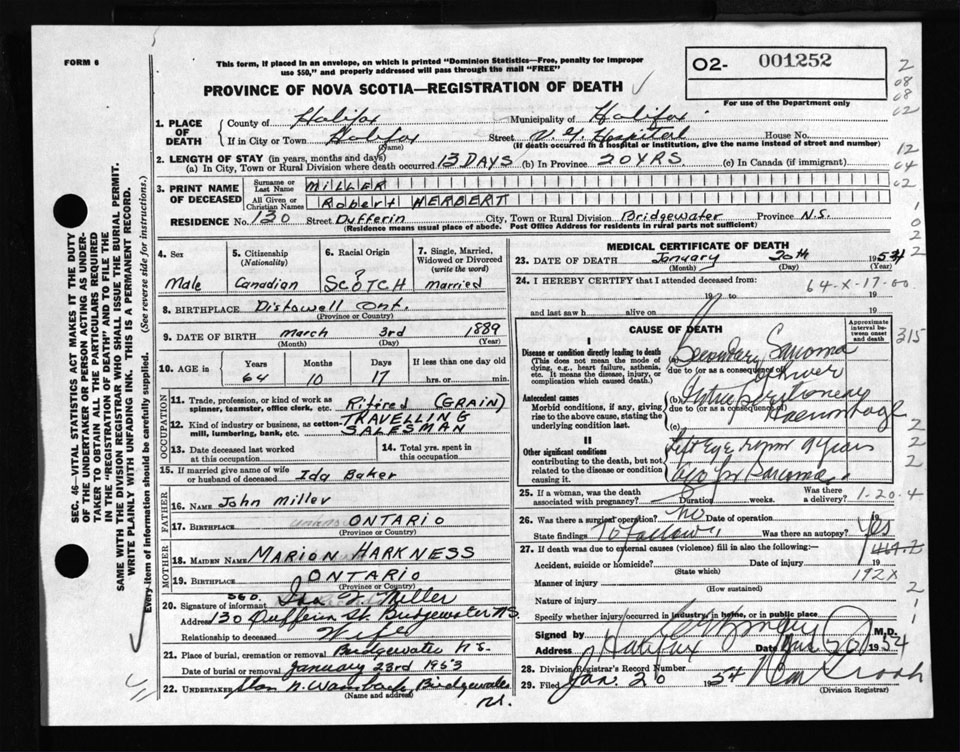 FORM 6
This form, if placed in an envelope, on which is printed "Dominion Statistics—Free, penalty for improper
use $50," and properly addressed will pass through the mail "FREE"
PROVINCE OF NOVA SCOTIA—REGISTRATION OF DEATH
O2- 001252
For use of the Department only
SEC. 46—VITAL STATISTICS ACT MAKES IT THE DUTY
OF THE UNDERTAKER OR PERSON ACTING AS UNDER-
TAKER TO OBTAIN ALL THE PARTICULARS REQUIRED
IN THE "REGISTRATION OF DEATH" AND TO FILE THE
SAME WITH THE DIVISION REGISTRAR WHO SHALL ISSUE THE BURIAL PERMIT.
WRITE PLAINLY WITH UNFADING INK. THIS IS A PERMANENT RECORD.
Every item of information should be carefully supplied. (See reverse side for instructions.)
1. PLACE OF DEATH
County of Halifax Municipality of Halifax
If in City or Town Halifax Street V. G. Hospital House No.
(Name) (If death occurred in a hospital or institution, give the name instead of street and number)
2. LENGTH OF STAY (in years, months and days)
(a) In City, Town or Rural Division where death occurred 13 DAYS (b) In Province 20 YRS. (c) In Canada (if immigrant)
3. PRINT NAME OF DECEASED
Surname or Last Name MILLER
All Given or Christian Names Robert HERBERT
RESIDENCE No. 130 Street Dufferin City, Town or Rural Division Bridgewater Province N.S.
(Residence means usual place of abode. Post Office Address for residents in rural parts not sufficient)
4. Sex
Male
5. Citizenship (Nationality)
Canadian
6. Racial Origin
SCOTCH
7. Single, Married, Widowed or Divorced (write the word)
Married
8. BIRTHPLACE Distowell Ont.
(Province or Country)
9. DATE OF BIRTH March 3rd 1889
(Month) (Day) (Year)
10. AGE in Years Months Days If less than one day old
64 10 17 hrs. or min.
OCCUPATION
11. Trade, profession, or kind of work as spinner, teamster, office clerk, etc. Ritired (GRAIN)
12. Kind of industry or business, as cotton-mill, lumbering, bank, etc. TRAVELLING SALESMAN
13. Date deceased last worked at this occupation
14. Total yrs. spent in this occupation
15. If married give name of wife or husband of deceased Ida Baker
FATHER
16. NAME John Miller
17. BIRTHPLACE ONTARIO
(Province or Country)
MOTHER
18. MAIDEN NAME MARION HARKNESS
19. BIRTHPLACE ONTARIO
(Province or Country)
20. Signature of informant SGD. Ida Miller
Address 130 Dufferin St. Bridgewater N.S.
Relationship to deceased Wife
21. Place of burial, cremation or removal Bridgewater N.S.
Date of burial or removal January 23rd 1953
22. Undertaker Bridgewater
(Name and address) N.S.
MEDICAL CERTIFICATE OF DEATH
23. DATE OF DEATH January 20th 1954
(Month) (Day) (Year)
24. I HEREBY CERTIFY that I attended deceased from:
64-X-17-00
19 to 19
and last saw h alive on 19
CAUSE OF DEATH
Approximate interval between onset and death
I
Disease or condition directly leading to death
(This does not mean the mode of dying, e.g., heart failure, asthenia, etc. It means the disease, injury, or complication which caused death.)
(a) Secondary Sarcoma
due to (or as a consequence of) of Liver
Antecedent causes
Morbid conditions, if any, giving rise to the above cause, stating the underlying condition last.
(b) Intraperitoneal
due to (or as a consequence of) Haemorrhage
(c)
II
Other significant conditions
contributing to the death, but not related to the disease or condition causing it.
Left Eye 9 Years
ago for Sarcoma
25. If a woman, was the death associated with pregnancy? Duration weeks. Was there a delivery? 1-20-4
26. Was there a surgical operation? No Date of operation 19
State findings To follow Was there an autopsy? Yes
27. If death was due to external causes (violence) fill in also the following:—
Accident, suicide or homicide? Date of injury 19
(State which) 192X
Manner of injury
(How sustained)
Nature of injury
Specify whether injury occurred in industry, in home, or in public place
Signed by M.D.
Address Halifax Date Jan 20 1954
28. Division Registrar's Record Number
29. Filed Jan. 26 1954
(Division Registrar)
2
08
08
02
12
64
02
1
0
2
2
315
2
2
2
2
1